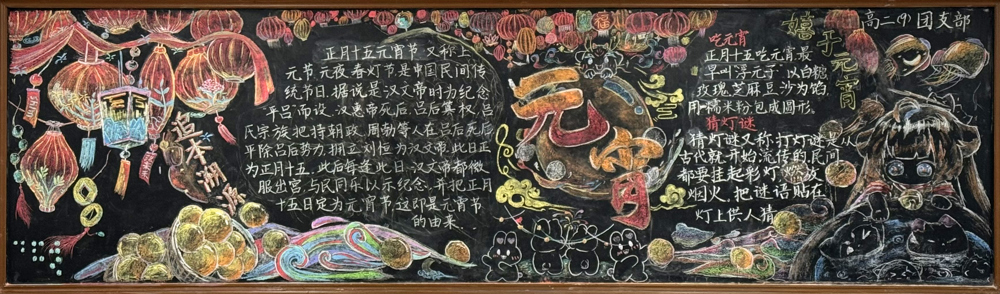 追本溯源
正月十五元宵节，又称上
元节，元夜，春灯节是中国民间传
统节日，据说是汉文帝时为纪念
平吕而设，汉惠帝死后，吕后篡权，吕
氏宗族把持朝政，周勃等人在吕后死后
平除吕后势力，拥立刘恒为汉文帝，此日正
为正月十五，此后每逢此日，汉文帝都微
服出宫，与民同乐以示纪念，并把正月
十五日定为元宵节，这即是元宵节
的由来.
元宵
福
嬉乎元宵
高二(9)团支部
吃元宵
正月十五吃元宵最
早叫“浮元子”以白糖，
玫瑰，芝麻，豆沙为馅，
用糯米粉包成圆形.
猜灯谜
猜灯谜又称打灯谜是从
古代就开始流传的民间
都要挂起彩灯，燃放
烟火，把谜语贴在
灯上供人猜